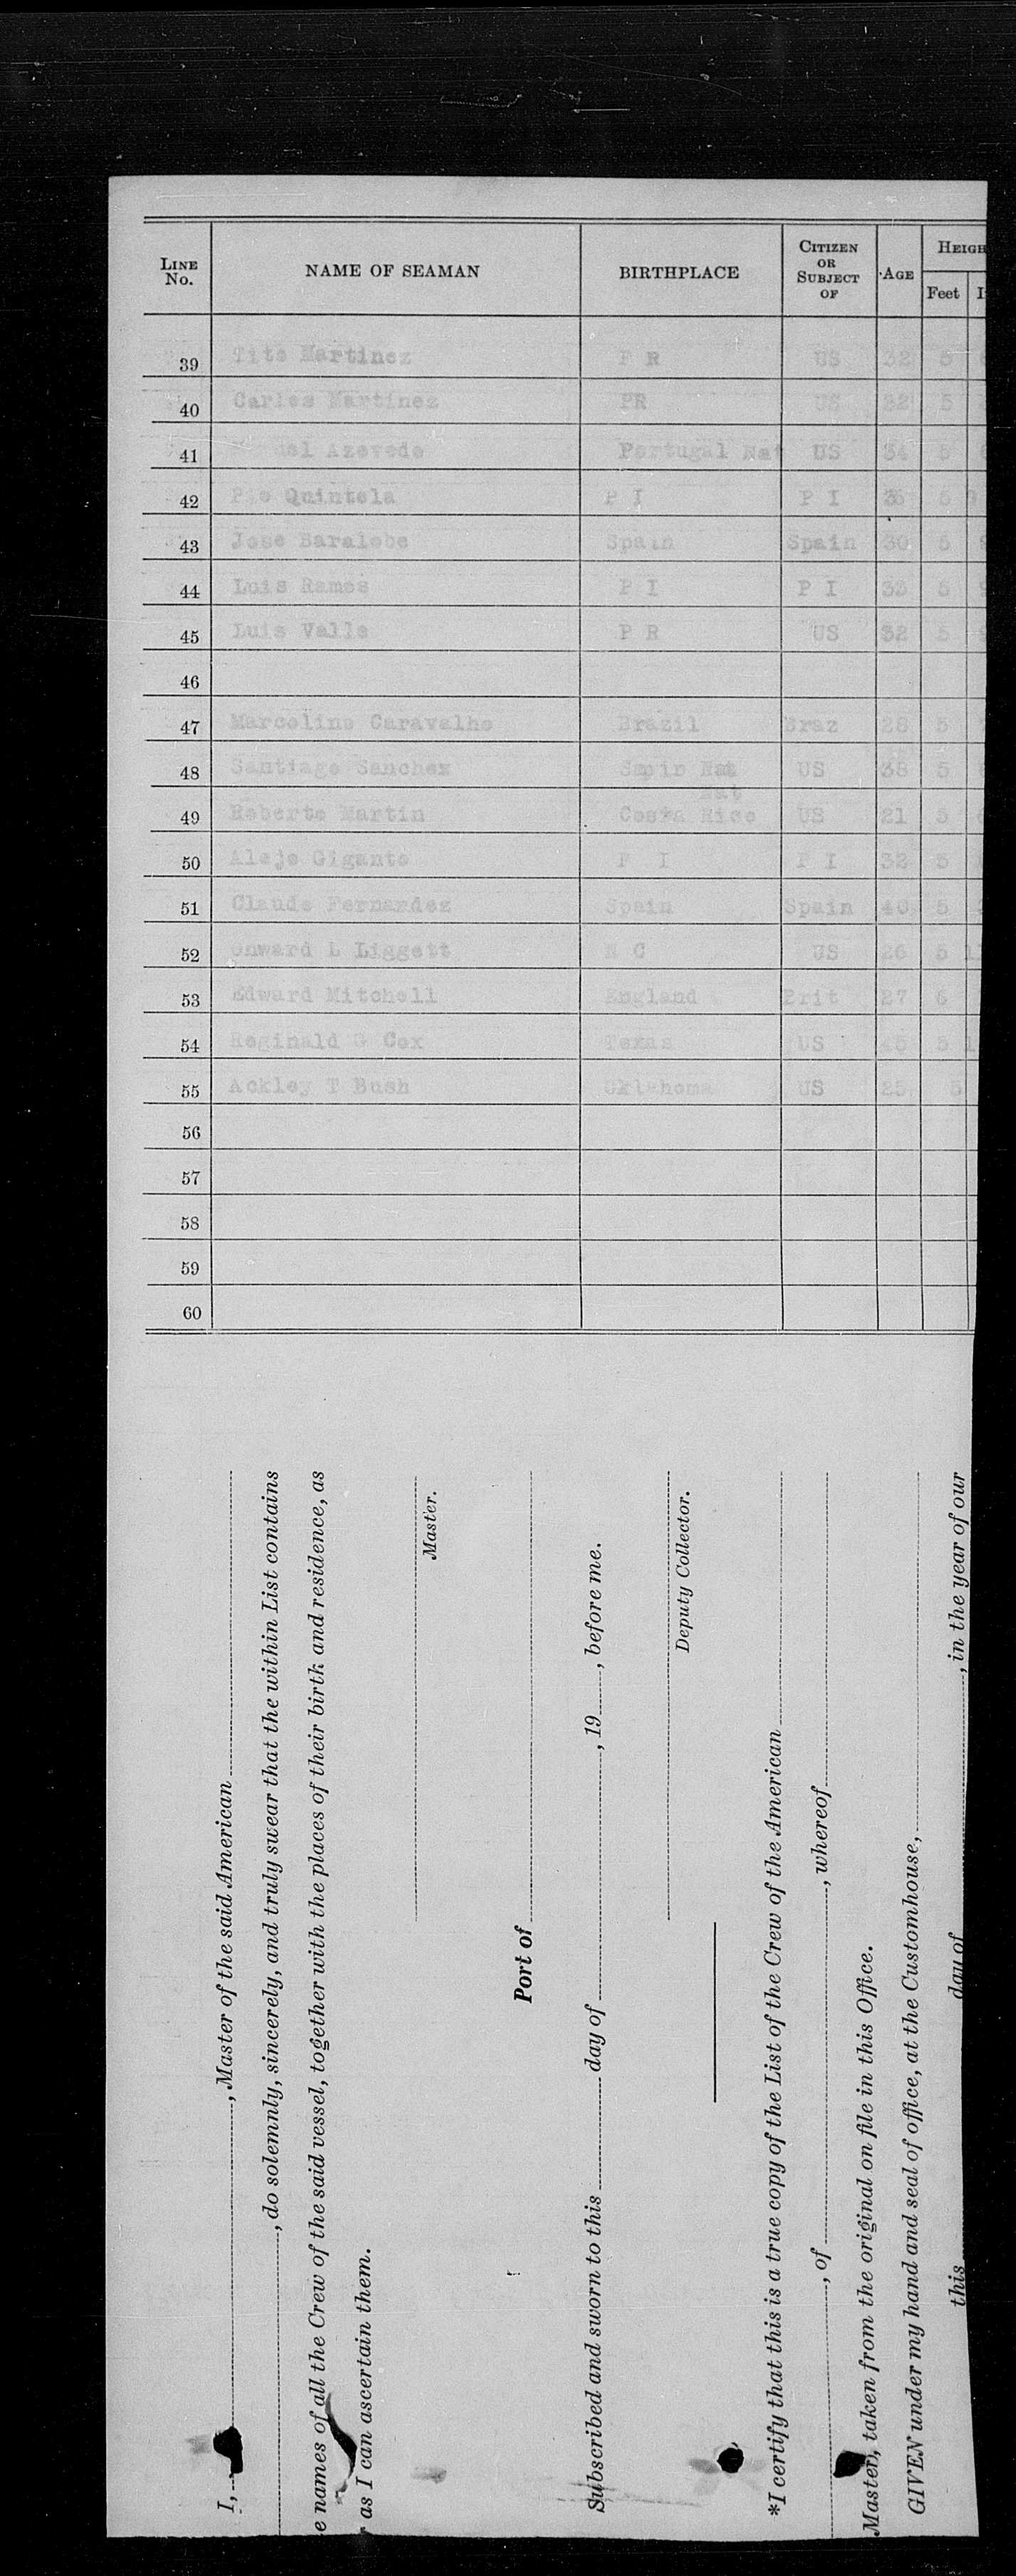 LINE No. NAME OF SEAMAN BIRTHPLACE CITIZEN OR SUBJECT OF AGE HEIGH
Feet I
39 Tito Martinez P R US 32 5
40 Carlos Martinez PR US 22 5
41 Azevedo Portugal Nat US 34 5
42 Pio Quintela P I P I 35 5
43 Jose Baralobe Spain Spain 30 5
44 Luis Ramos P I P I 33 5
45 Luis Valls P R US 32 5
46
47 Marcolino Caravalho Brazil Braz 28 5
48 Santiago Sanchez Sapin Nat US 38 5
Nat
49 Roberto Martin Costa Rico US 21 5
50 Alejo Giganto P I P I 32 5
51 Claudo Fernandez Spain Spain 40 5
52 L Liggett N C US 26 5 11
53 Edward Mitchell England Brit 27 6
54 Reginald G Cox Texas US 25 5
55 Ackley T Bush Oklahoma US 5
56
57
58
59
60
I, , Master of the said American
, do solemnly, sincerely, and truly swear that the within List contains
e names of all the Crew of the said vessel, together with the places of their birth and residence, as
as I can ascertain them.
Master.
Port of
Subscribed and sworn to this day of , 19 , before me.
Deputy Collector.
*I certify that this is a true copy of the List of the Crew of the American
, of , whereof
Master, taken from the original on file in this Office.
GIVEN under my hand and seal of office, at the Customhouse,
this day of , in the year of our